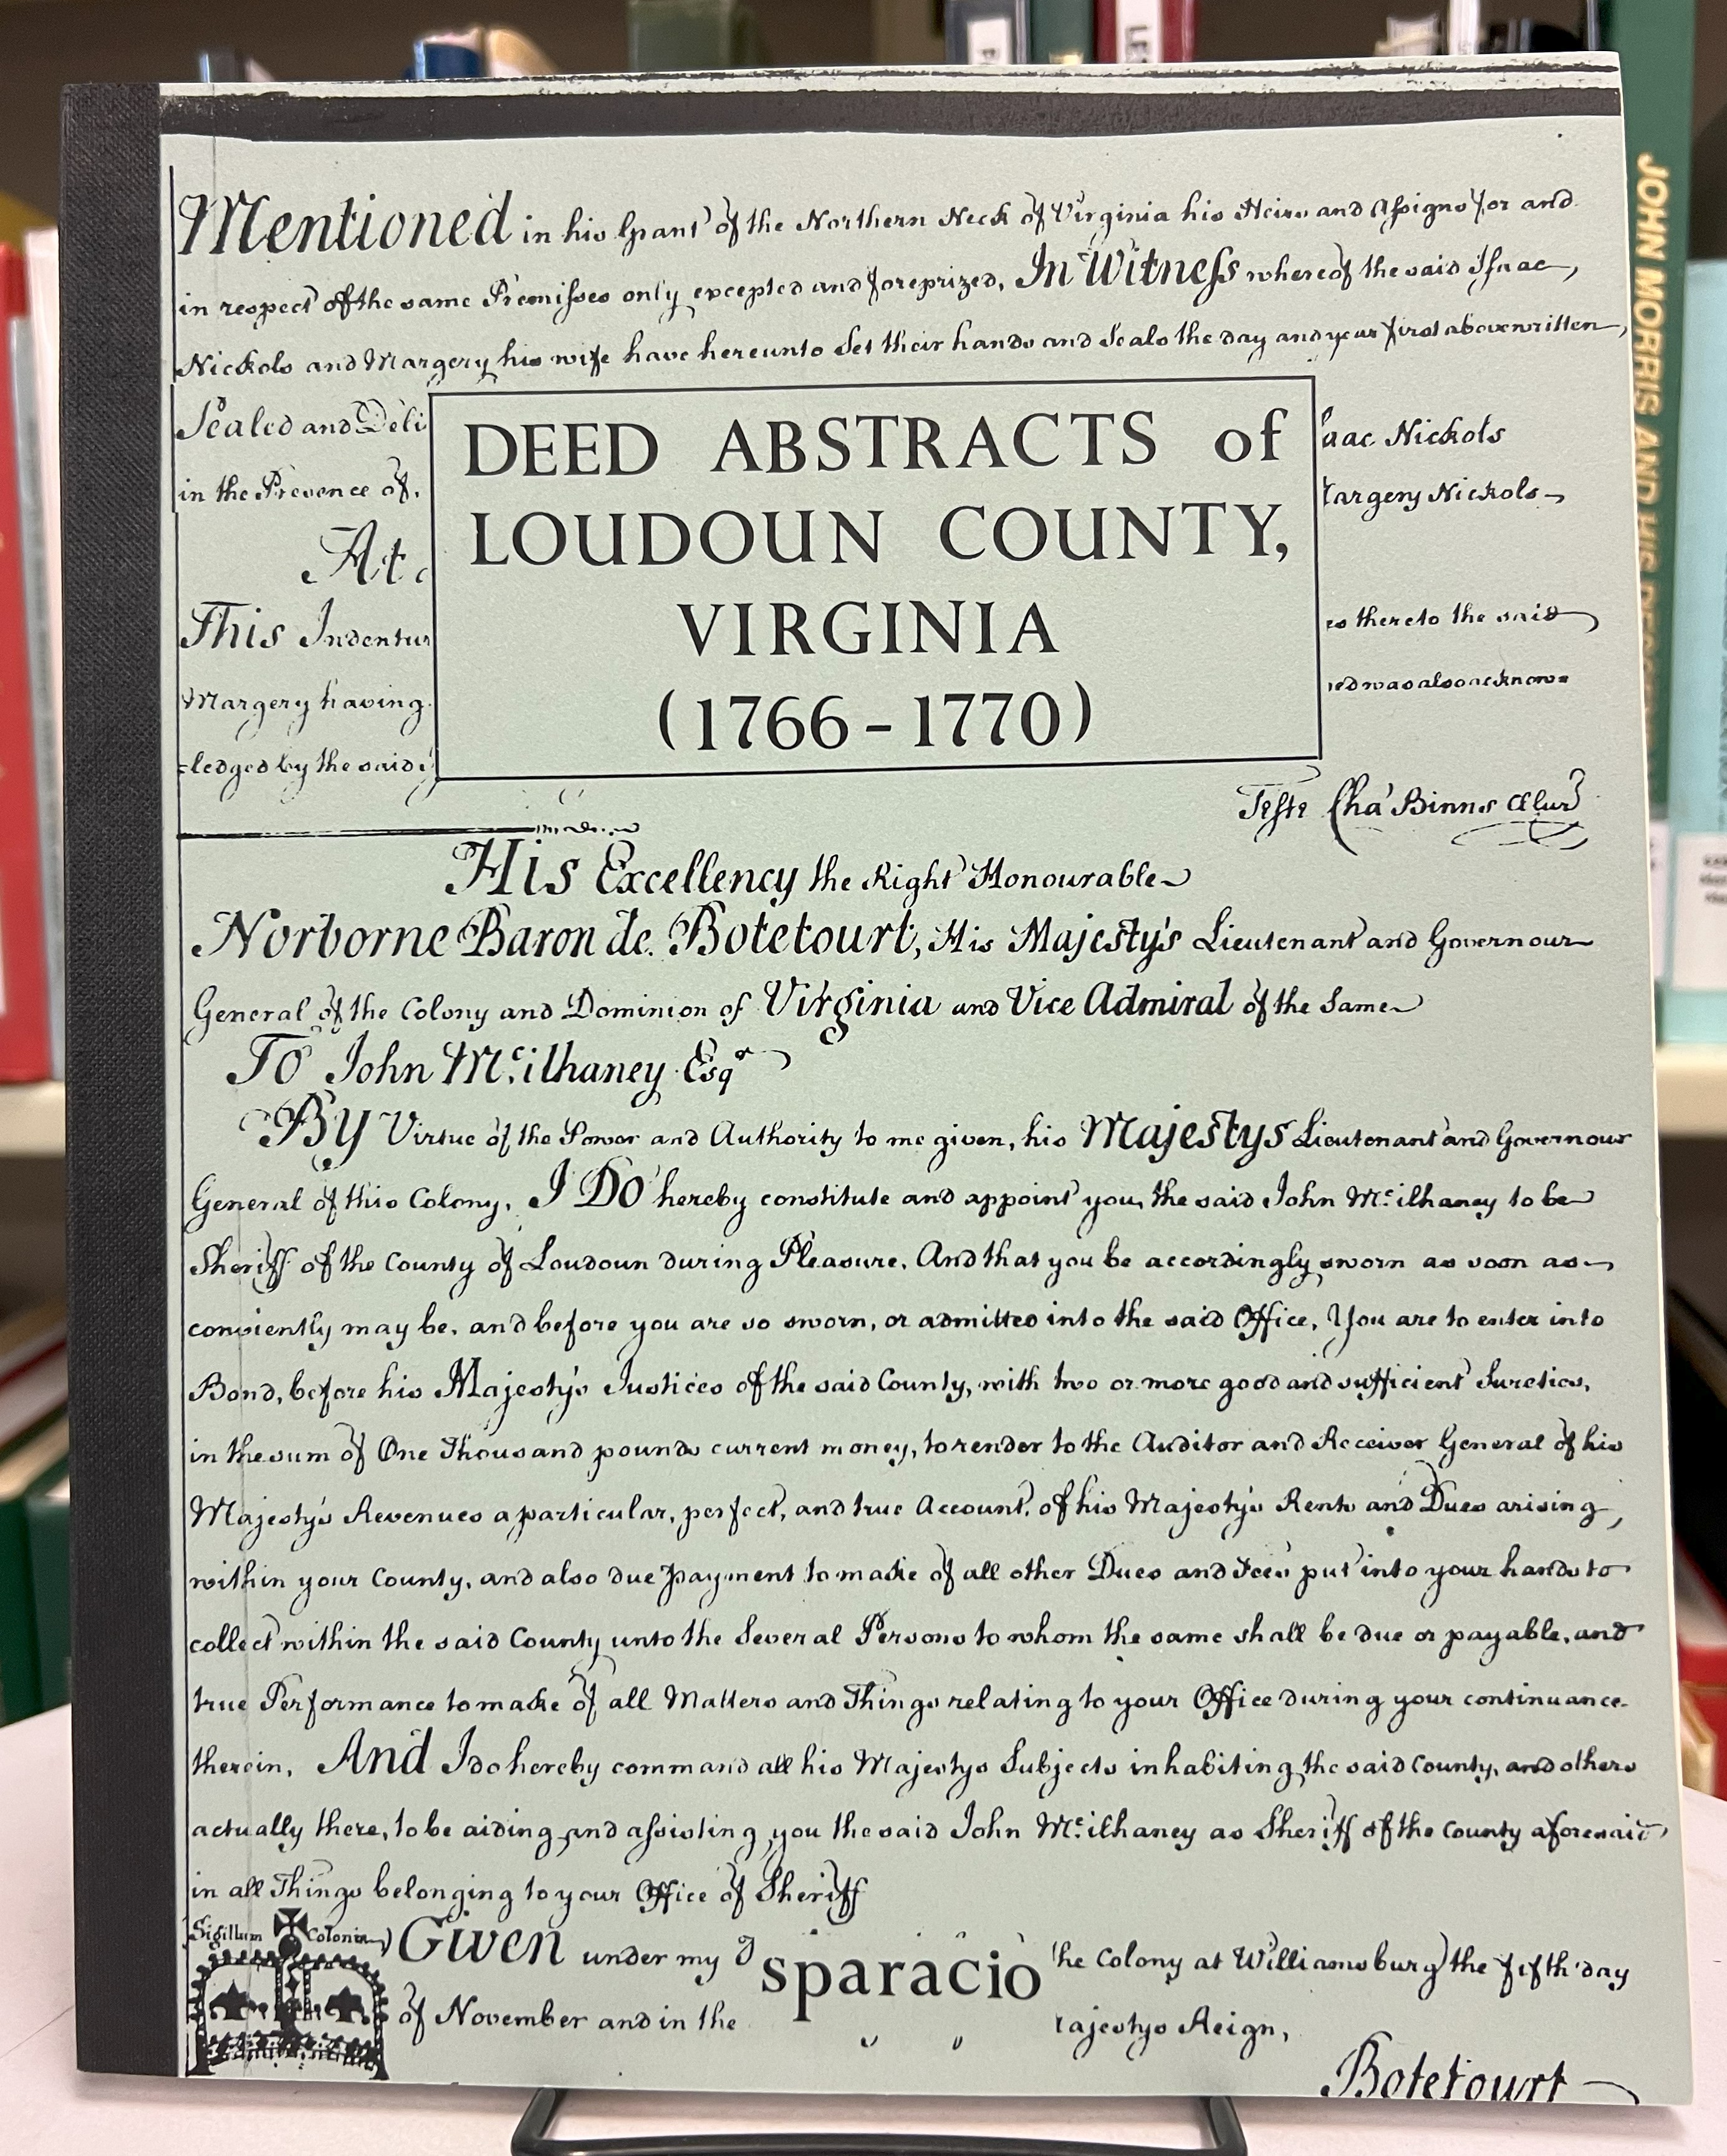 Mentioned in his Grant of the Northern Neck of Virginia his Heirs and Assigns for and
in respect of the same Premisses only excepted and foreprized, In Witness whereof the said Isaac
Nickols and Margery his wife have hereunto Set their hands and Seals the day and year first abovewritten
Sealed and Deli
in the Presence of.
At
This Indentur
Margery having
=ledged by the said
DEED ABSTRACTS of
LOUDOUN COUNTY,
VIRGINIA
(1766-1770)
saac Nickols
Margery Nickols
es thereto the said
ed was also acknow=
Teste Cha Binns Clur
His Excellency the Right Honourable
Norborne Baron de Botetourt, His Majesty's Lieutenant and Governour
General of the Colony and Dominion of Virginia and Vice Admiral of the Same
To John McIlhaney Esqr
By Virtue of the Power and Authority to me given, his Majestys Lieutenant and Governour
General of this Colony, I Do hereby constitute and appoint you, the said John Mc:ilhaney to be
Sheriff of the County of Loudoun during Pleasure, And that you be accordingly sworn as soon as
conviently may be, and before you are so sworn, or admitted into the said Office, You are to enter into
Bond, before his Majesty's Justices of the said County, with two or more good and sufficient Sureties,
in the sum of One Thousand pounds current money, to render to the Auditor and Receiver General of his
Majesty's Revenues a particular, perfect, and true Account, of his Majesty's Rents and Dues arising,
within your County, and also due payment to make of all other Dues and Fees put into your hands to
collect within the said County unto the Several Persons to whom the same shall be due or payable, and
true Performance to make of all Matters and Things relating to your Office during your continuance
therein, And I do hereby command all his Majestys Subjects inhabiting the said County, and others
actually there, to be aiding and assisting you the said John Mc:ilhaney as Sheriff of the County aforesaid
in all Things belonging to your Office of Sheriff
Sigillum Colonia
Given under my
sparacio
he Colony at Williamsburg the fifth day
of November and in the
ajestys Reign,
Botetourt
JOHN MORRIS AND HIS